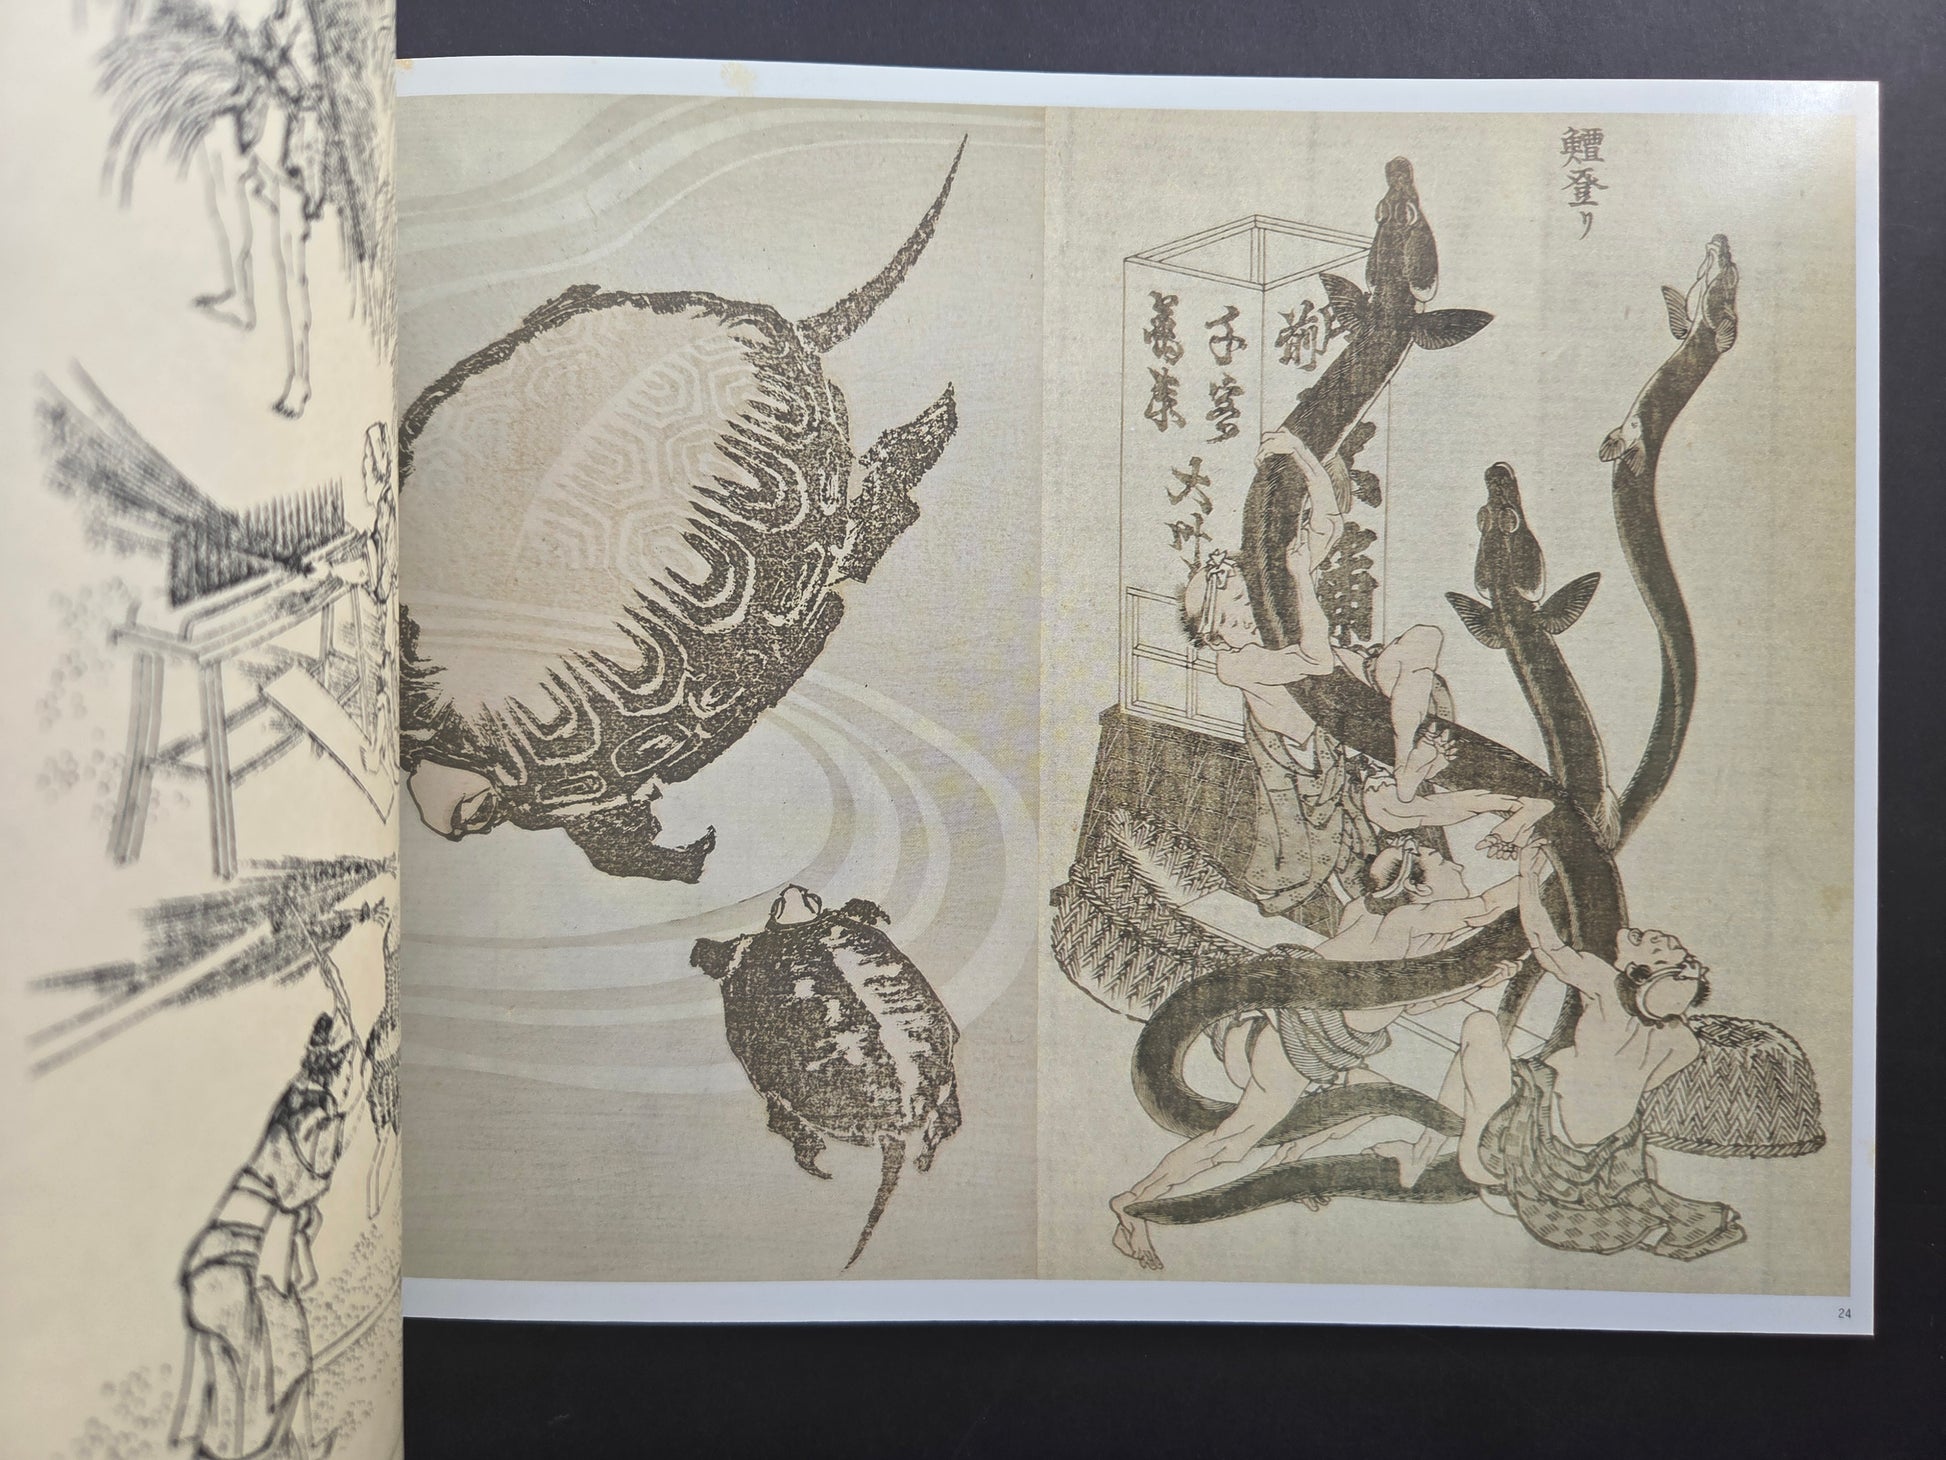 鱣登り
千客
萬来
大叶
24